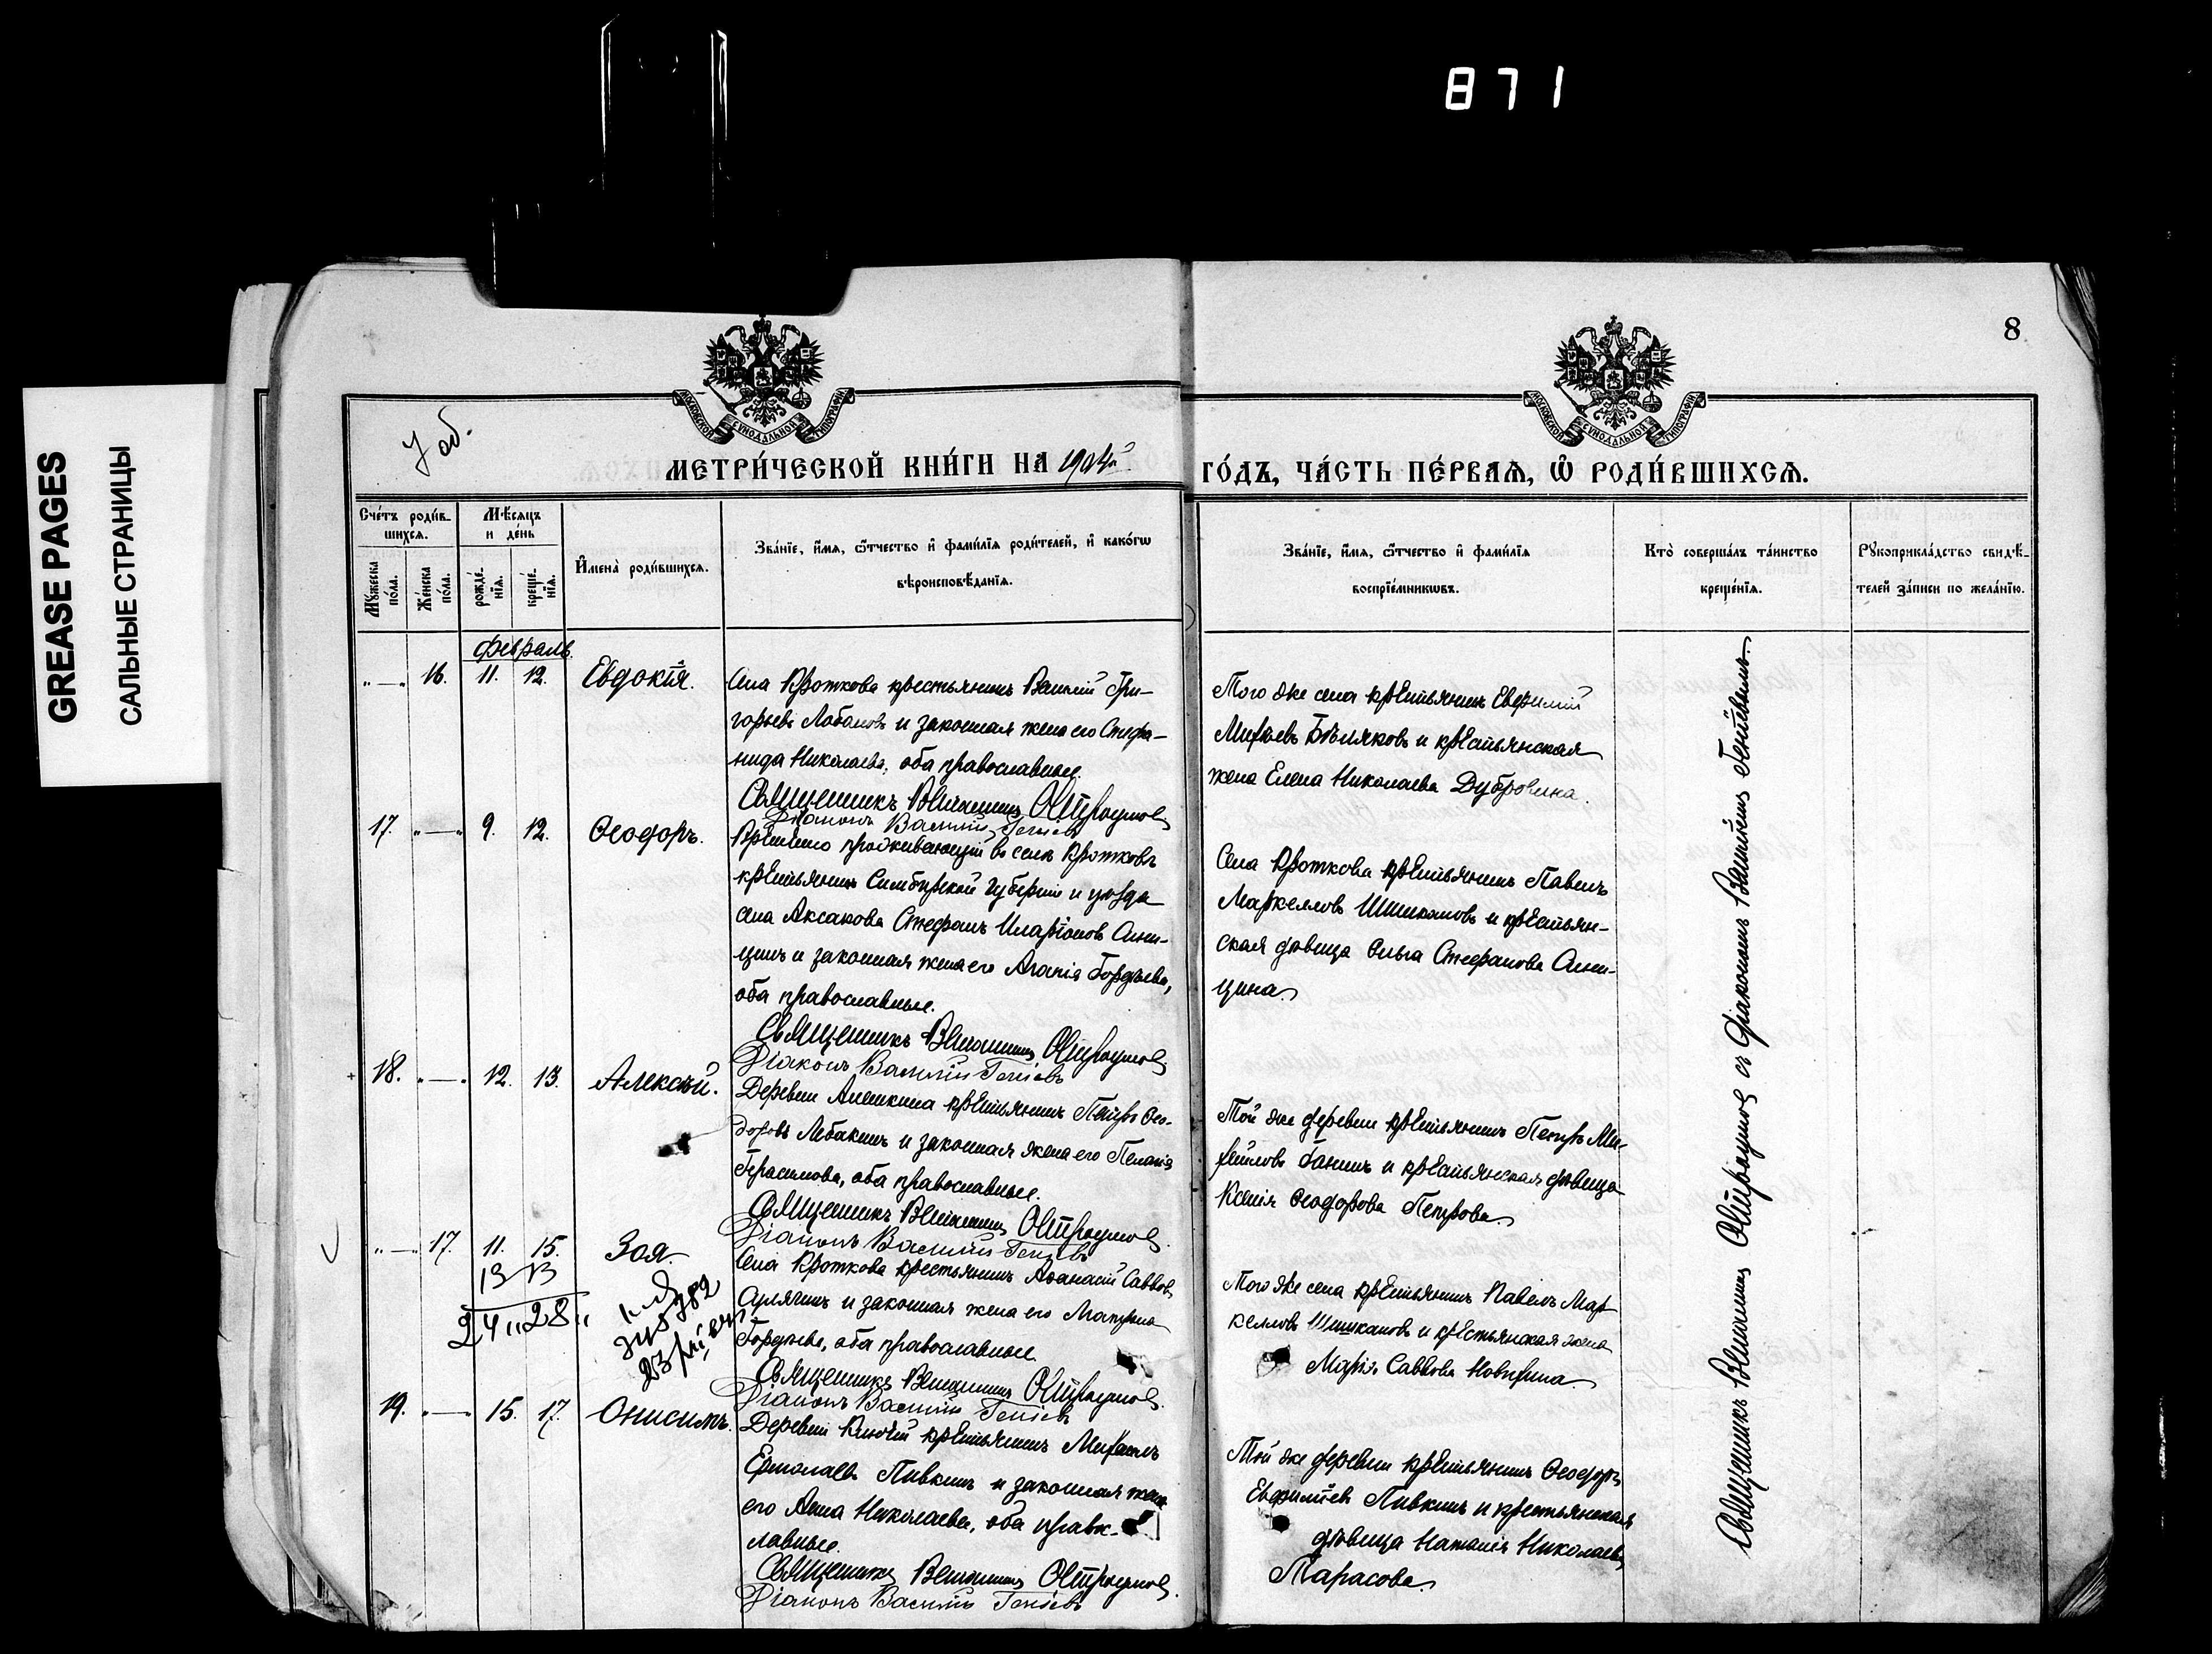 871
GREASE PAGES
САЛЬНЫЕ СТРАНИЦЫ
8
7 об.
МОСКОВСКОЙ СѴНОДАЛЬНОЙ ТИПОГРАФІИ
МОСКОВСКОЙ СѴНОДАЛЬНОЙ ТИПОГРАФІИ
МЕТРИ́ЧЕСКОЙ КНИ́ГИ НА 1904й ГО́ДЪ, ЧА́СТЬ ПЕ́РВАѦ, Ѽ РОДИ́ВШИХСѦ.
Сче́тъ роди́вшихсѧ.
Мꙋ́жеска по́ла.
Же́нска по́ла.
Мѣ́сѧцъ и де́нь
рожде́нїѧ.
креще́нїѧ.
И҆мена̀ роди́вшихсѧ.
Зва́нїе, и҆́мѧ, ѻ҆́тчество и҆ фами́лїѧ роди́телей, и҆ како́гѡ
вѣроисповѣ́данїѧ.
Зва́нїе, и҆́мѧ, ѻ҆́тчество и҆ фами́лїѧ
воспрїе́мникѡвъ.
Кто̀ соверша́лъ та́инство
креще́нїѧ.
Рꙋкоприкла́дство свидѣ́-
телей за́писи по жела́нїю.
Февраль.
„—„ 16. 11. 12. Евдокія.
Села Кроткова крестьянинъ Василій Гри-
горьевъ Лобановъ и законная жена его Стефа-
нида Николаева, оба православные.
Священникъ Веніаминъ Остроумовъ
Діаконъ Василій Геніевъ
Того же села крестьянинъ Евфимій
Михѣевъ Бѣляковъ и крестьянская
жена Елена Николаева Дубровина.
17. „—„ 9. 12. Ѳеодоръ.
Временно проживающій въ селѣ Кротковѣ
крестьянинъ Симбирской губерніи и уѣзда
села Аксакова Стефанъ Иларіоновъ Сини-
цинъ и законная жена его Агапія Гордѣева,
оба православные.
Священникъ Веніаминъ Остроумовъ
Діаконъ Василій Геніевъ
Села Кроткова крестьянинъ Павелъ
Маркелловъ Шишкановъ и крестьян-
ская дѣвица Ольга Стефанова Сини-
цина.
18. „—„ 12. 13. Алексѣй.
Деревни Алешкина крестьянинъ Петръ Ѳео-
доровъ Лебакинъ и законная жена его Пелагія
Герасимова, оба православные.
Священникъ Веніаминъ Остроумовъ
Діаконъ Василій Геніевъ
Той же деревни крестьянинъ Петръ Ми-
хайловъ Ганинъ и крестьянская дѣвица
Ксенія Ѳеодорова Петрова.
„—„ 17. 11. 15. Зоя.
13 13
24 „ 28 „
Села Кроткова крестьянинъ Аѳанасій Саввовъ
Сулягинъ и законная жена его Матрона
Гордѣева, оба православные.
Священникъ Веніаминъ Остроумовъ
Діаконъ Василій Геніевъ
Того же села крестьянинъ Павелъ Мар-
келловъ Шишкановъ и крестьянская жена
Марія Саввова Новичина.
19. „—„ 15. 17. Онисимъ.
Деревни Ключей крестьянинъ Михаилъ
Ермолаевъ Пивкинъ и законная жена
его Анна Николаева, оба правос-
лавные.
Священникъ Веніаминъ Остроумовъ
Діаконъ Василій Геніевъ
Той же деревни крестьянинъ Ѳеодоръ
Евфиміевъ Пивкинъ и крестьянская
дѣвица Наталія Николаева
Тарасова.
Священникъ Веніаминъ Остроумовъ съ діакономъ Василіемъ Геніевымъ.